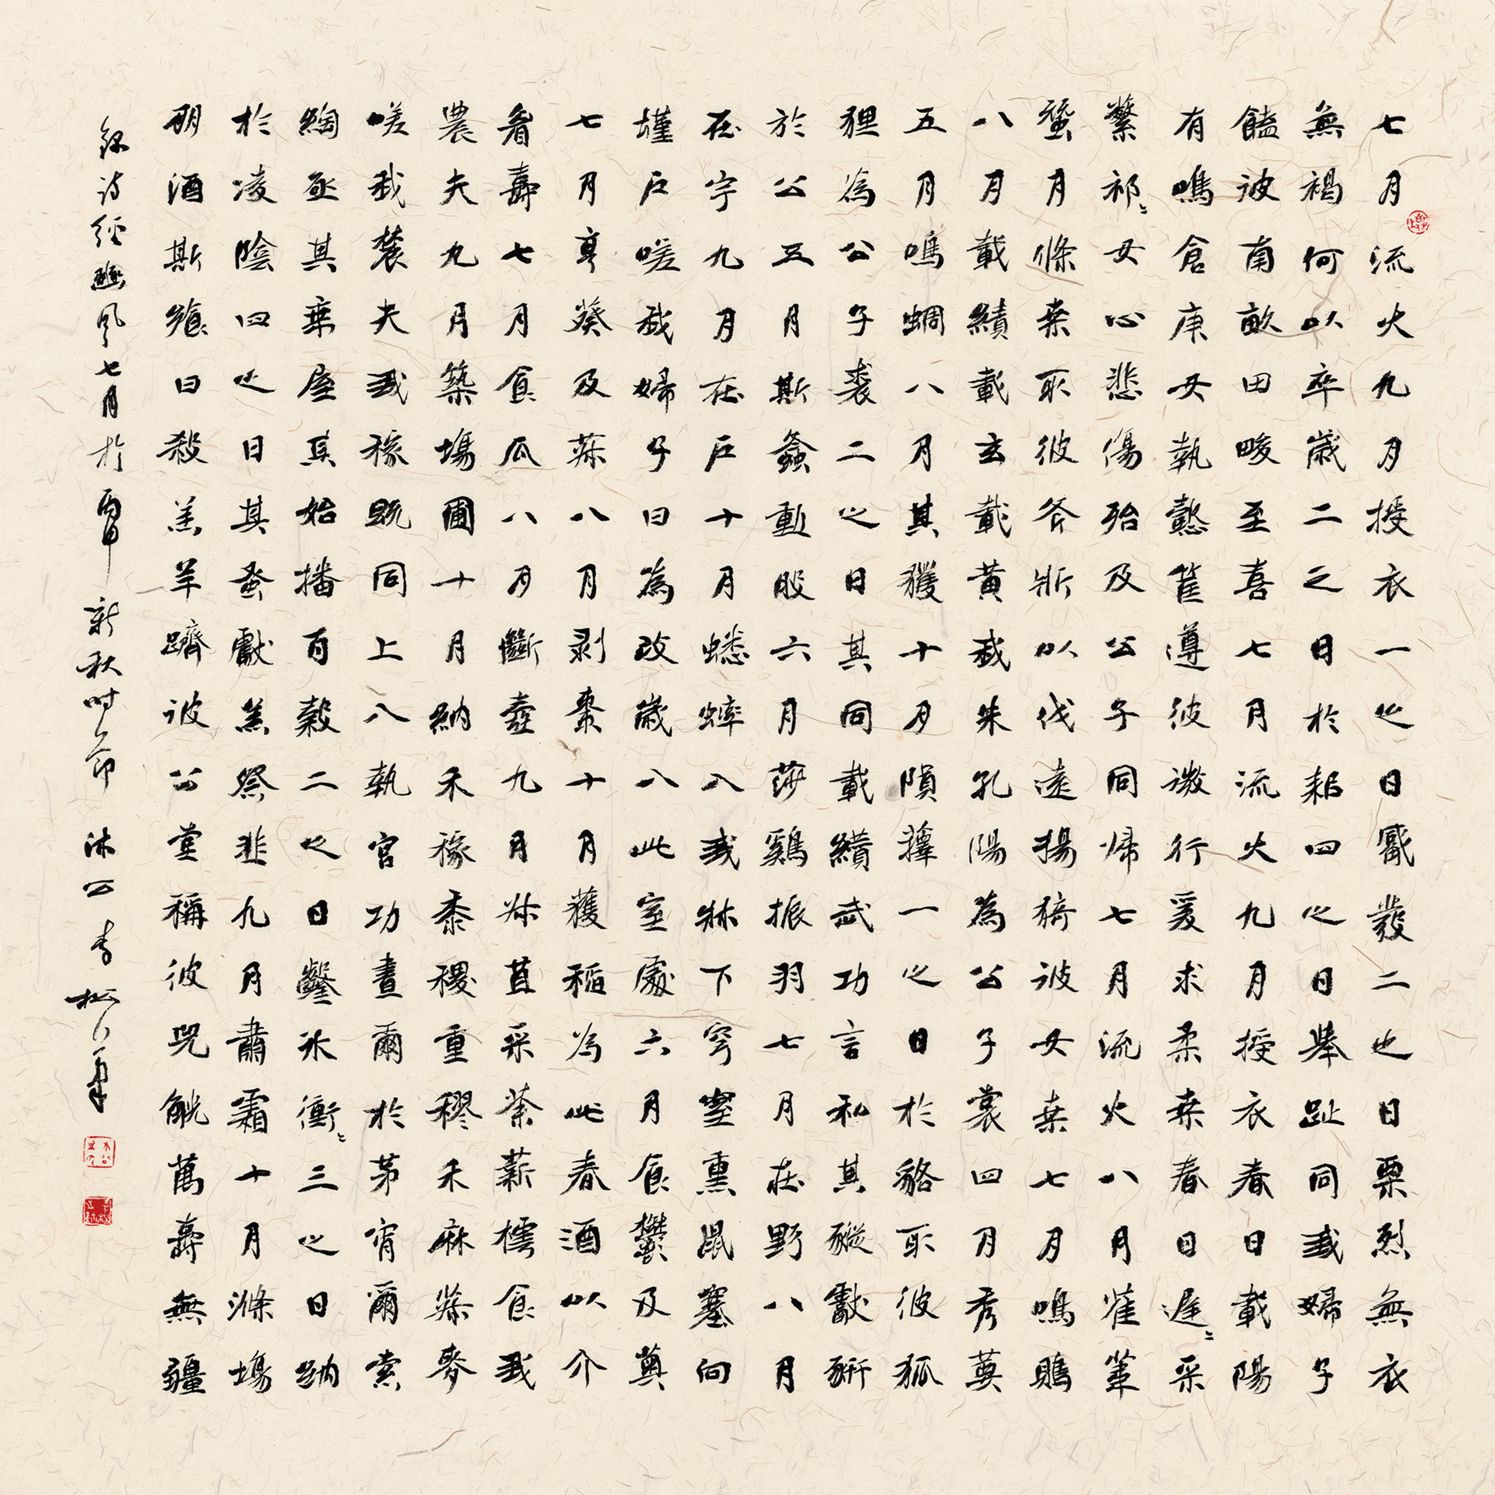 七月流火九月授衣一之日觱發二之日栗烈無衣
無褐何以卒歲二之日於耜四之日舉趾同我婦子
饁彼南畝田畯至喜七月流火九月授衣春日載陽
有鳴倉庚女執懿筐遵彼微行爰求柔桑春日遲〻采
蘩祁〻女心悲傷殆及公子同歸七月流火八月萑葦
蠶月條桑取彼斧斨以伐遠揚猗彼女桑七月鳴鵙
八月載績載玄載黃我朱孔陽為公子裳四月秀葽
五月鳴蜩八月其獲十月隕蘀一之日於貉取彼狐
狸為公子裘二之日其同載纘武功言私其豵獻豜
於公五月斯螽動股六月莎鷄振羽七月在野八月
在宇九月在戶十月蟋蟀入我牀下穹窒熏鼠塞向
墐戶嗟我婦子曰為改歲入此室處六月食鬱及薁
七月亨葵及菽八月剝棗十月獲稻為此春酒以介
眉壽七月食瓜八月斷壺九月叔苴采荼薪樗食我
農夫九月築場圃十月納禾稼黍稷重穋禾麻菽麥
嗟我農夫我稼既同上入執宮功晝爾於茅宵爾索
綯亟其乘屋其始播百穀二之日鑿冰衝〻三之日納
於凌陰四之日其蚤獻羔祭韭九月肅霜十月滌場
朋酒斯饗曰殺羔羊躋彼公堂稱彼兕觥萬壽無疆
錄詩經豳風七月於丙申新秋時節沐公李松筆